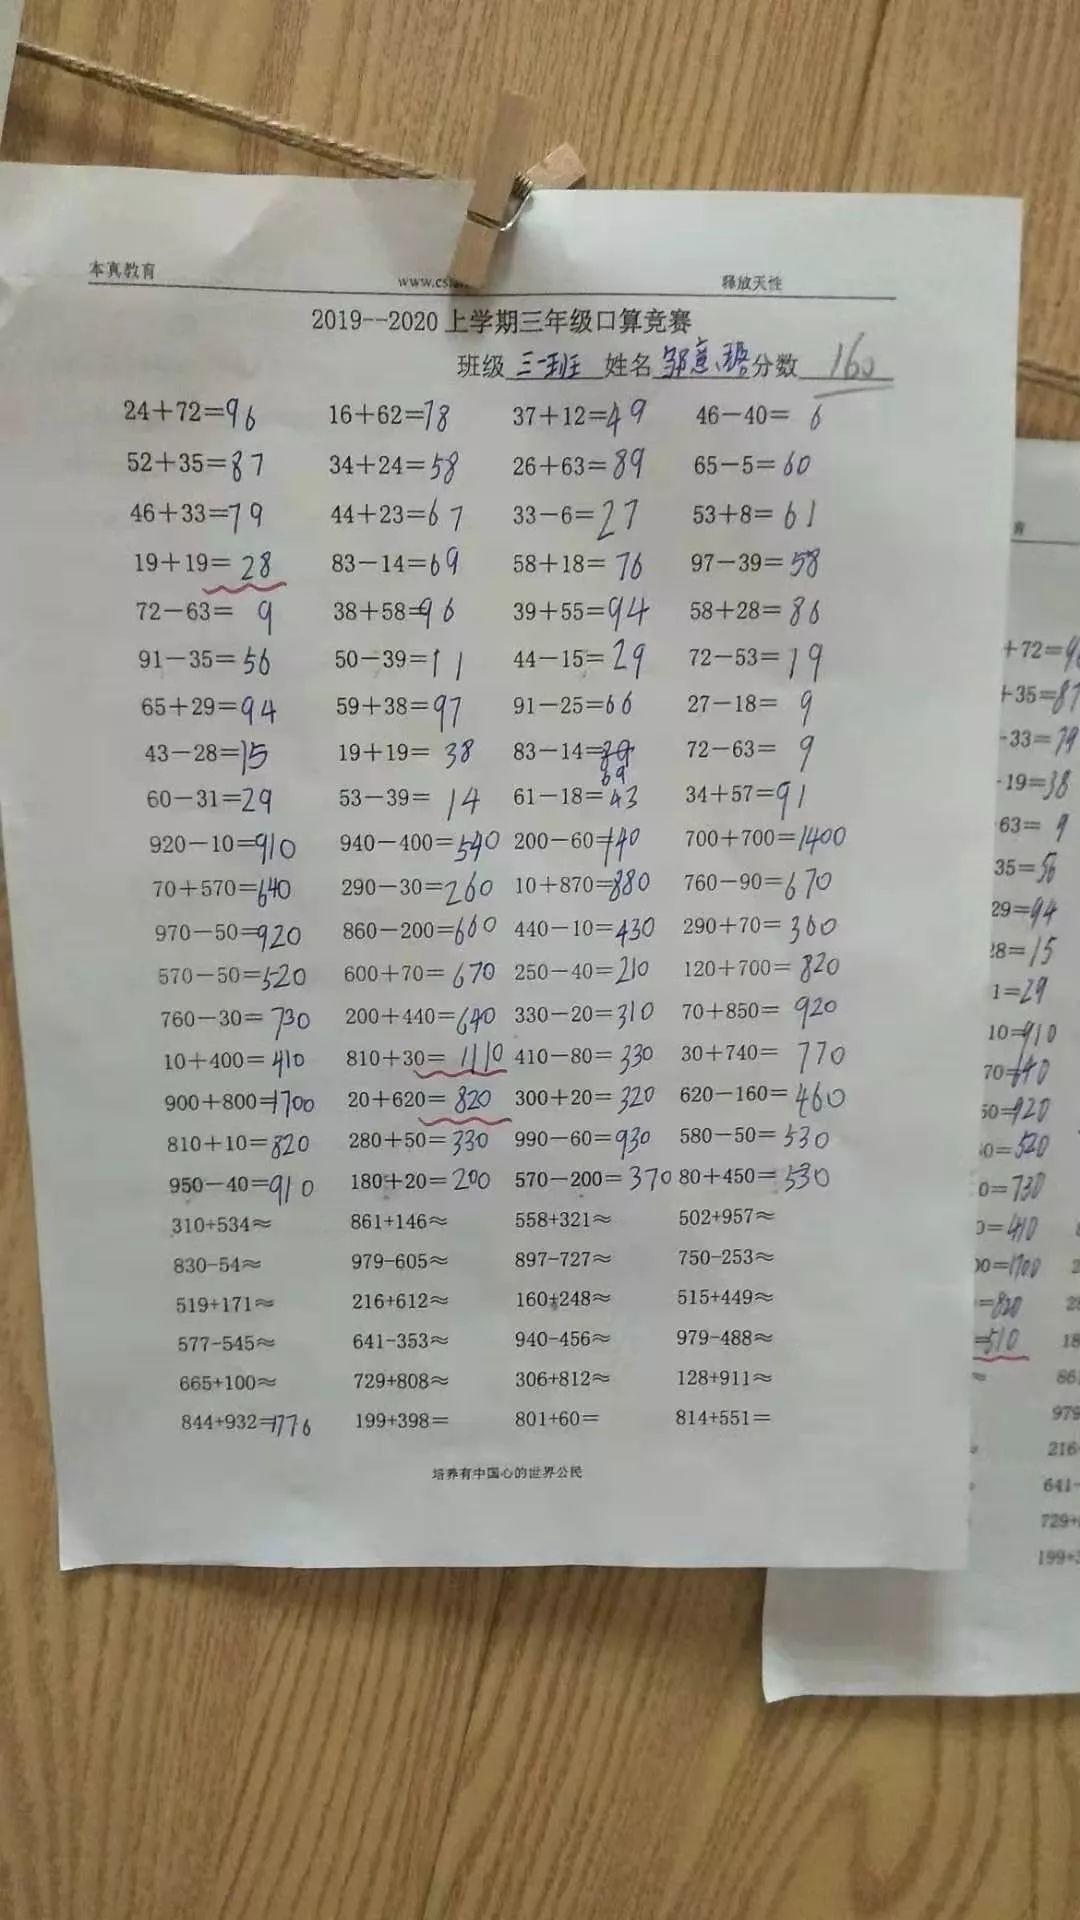 本真教育 释放天性
2019--2020上学期三年级口算竞赛
班级 三一班 姓名 分数 160
24+72=96 16+62=78 37+12=49 46-40=6
52+35=87 34+24=58 26+63=89 65-5=60
46+33=79 44+23=67 33-6=27 53+8=61
19+19=28 83-14=69 58+18=76 97-39=58
72-63=9 38+58=96 39+55=94 58+28=86
91-35=56 50-39=11 44-15=29 72-53=19
65+29=94 59+38=97 91-25=66 27-18=9
43-28=15 19+19=38 83-14=69 72-63=9
60-31=29 53-39=14 61-18=43 34+57=91
920-10=910 940-400=540 200-60=140 700+700=1400
70+570=640 290-30=260 10+870=880 760-90=670
970-50=920 860-200=660 440-10=430 290+70=360
570-50=520 600+70=670 250-40=210 120+700=820
760-30=730 200+440=640 330-20=310 70+850=920
10+400=410 810+30=1110 410-80=330 30+740=770
900+800=1700 20+620=820 300+20=320 620-160=460
810+10=820 280+50=330 990-60=930 580-50=530
950-40=910 180+20=200 570-200=370 80+450=530
310+534≈ 861+146≈ 558+321≈ 502+957≈
830-54≈ 979-605≈ 897-727≈ 750-253≈
519+171≈ 216+612≈ 160+248≈ 515+449≈
577-545≈ 641-353≈ 940-456≈ 979-488≈
665+100≈ 729+808≈ 306+812≈ 128+911≈
844+932=1776 199+398= 801+60= 814+551=
培养有中国心的世界公民
+72=
+35=87
-33=79
-19=38
63=9
35=56
29=94
28=15
1=29
10=910
70=640
50=920
0=520
0=730
0=410
00=1700
=820
=510
216
641-
729+